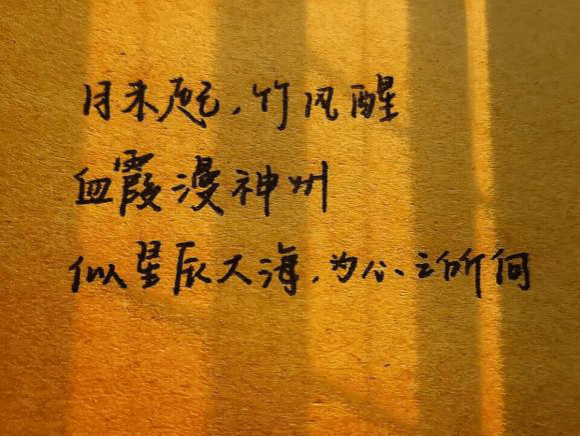 月未起,竹风醒
血霞漫神州
似星辰大海,为公之所向